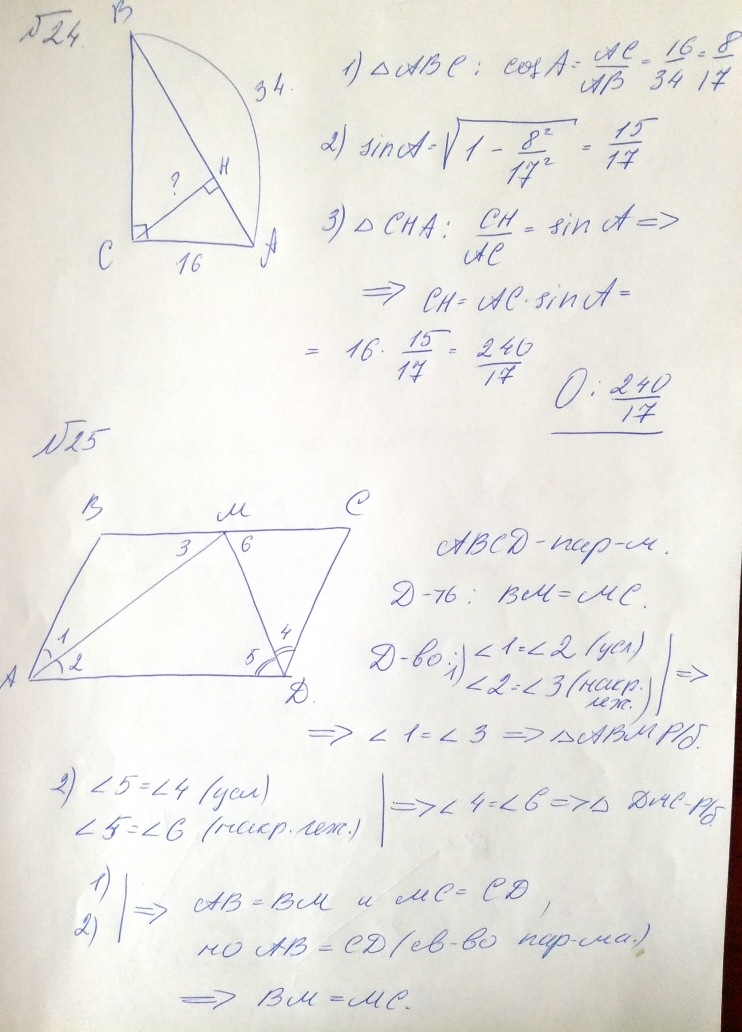 №24.
B
34
H
?
C
16
A
1) △ABC: cosA = AC/AB = 16/34 = 8/17
2) sinA = √(1 - 8²/17²) = 15/17
3) △CHA: CH/AC = sin A =>
=> CH = AC · sinA =
= 16 · 15/17 = 240/17
О: 240/17
№25
B M C
3 6
1 4
2 5
A D
ABCD - пар-м.
Д-ть: BM = MC.
Д-во: 1) ∠1 = ∠2 (усл)
∠2 = ∠3 (накр. леж.) | =>
=> ∠1 = ∠3 => △ABM Р/б.
2) ∠5 = ∠4 (усл)
∠5 = ∠6 (накр. леж.) | => ∠4 = ∠6 => △ DMC - Р/б
1)
2) | => AB = BM и MC = CD,
но AB = CD (св-во пар-ма.)
=> BM = MC.